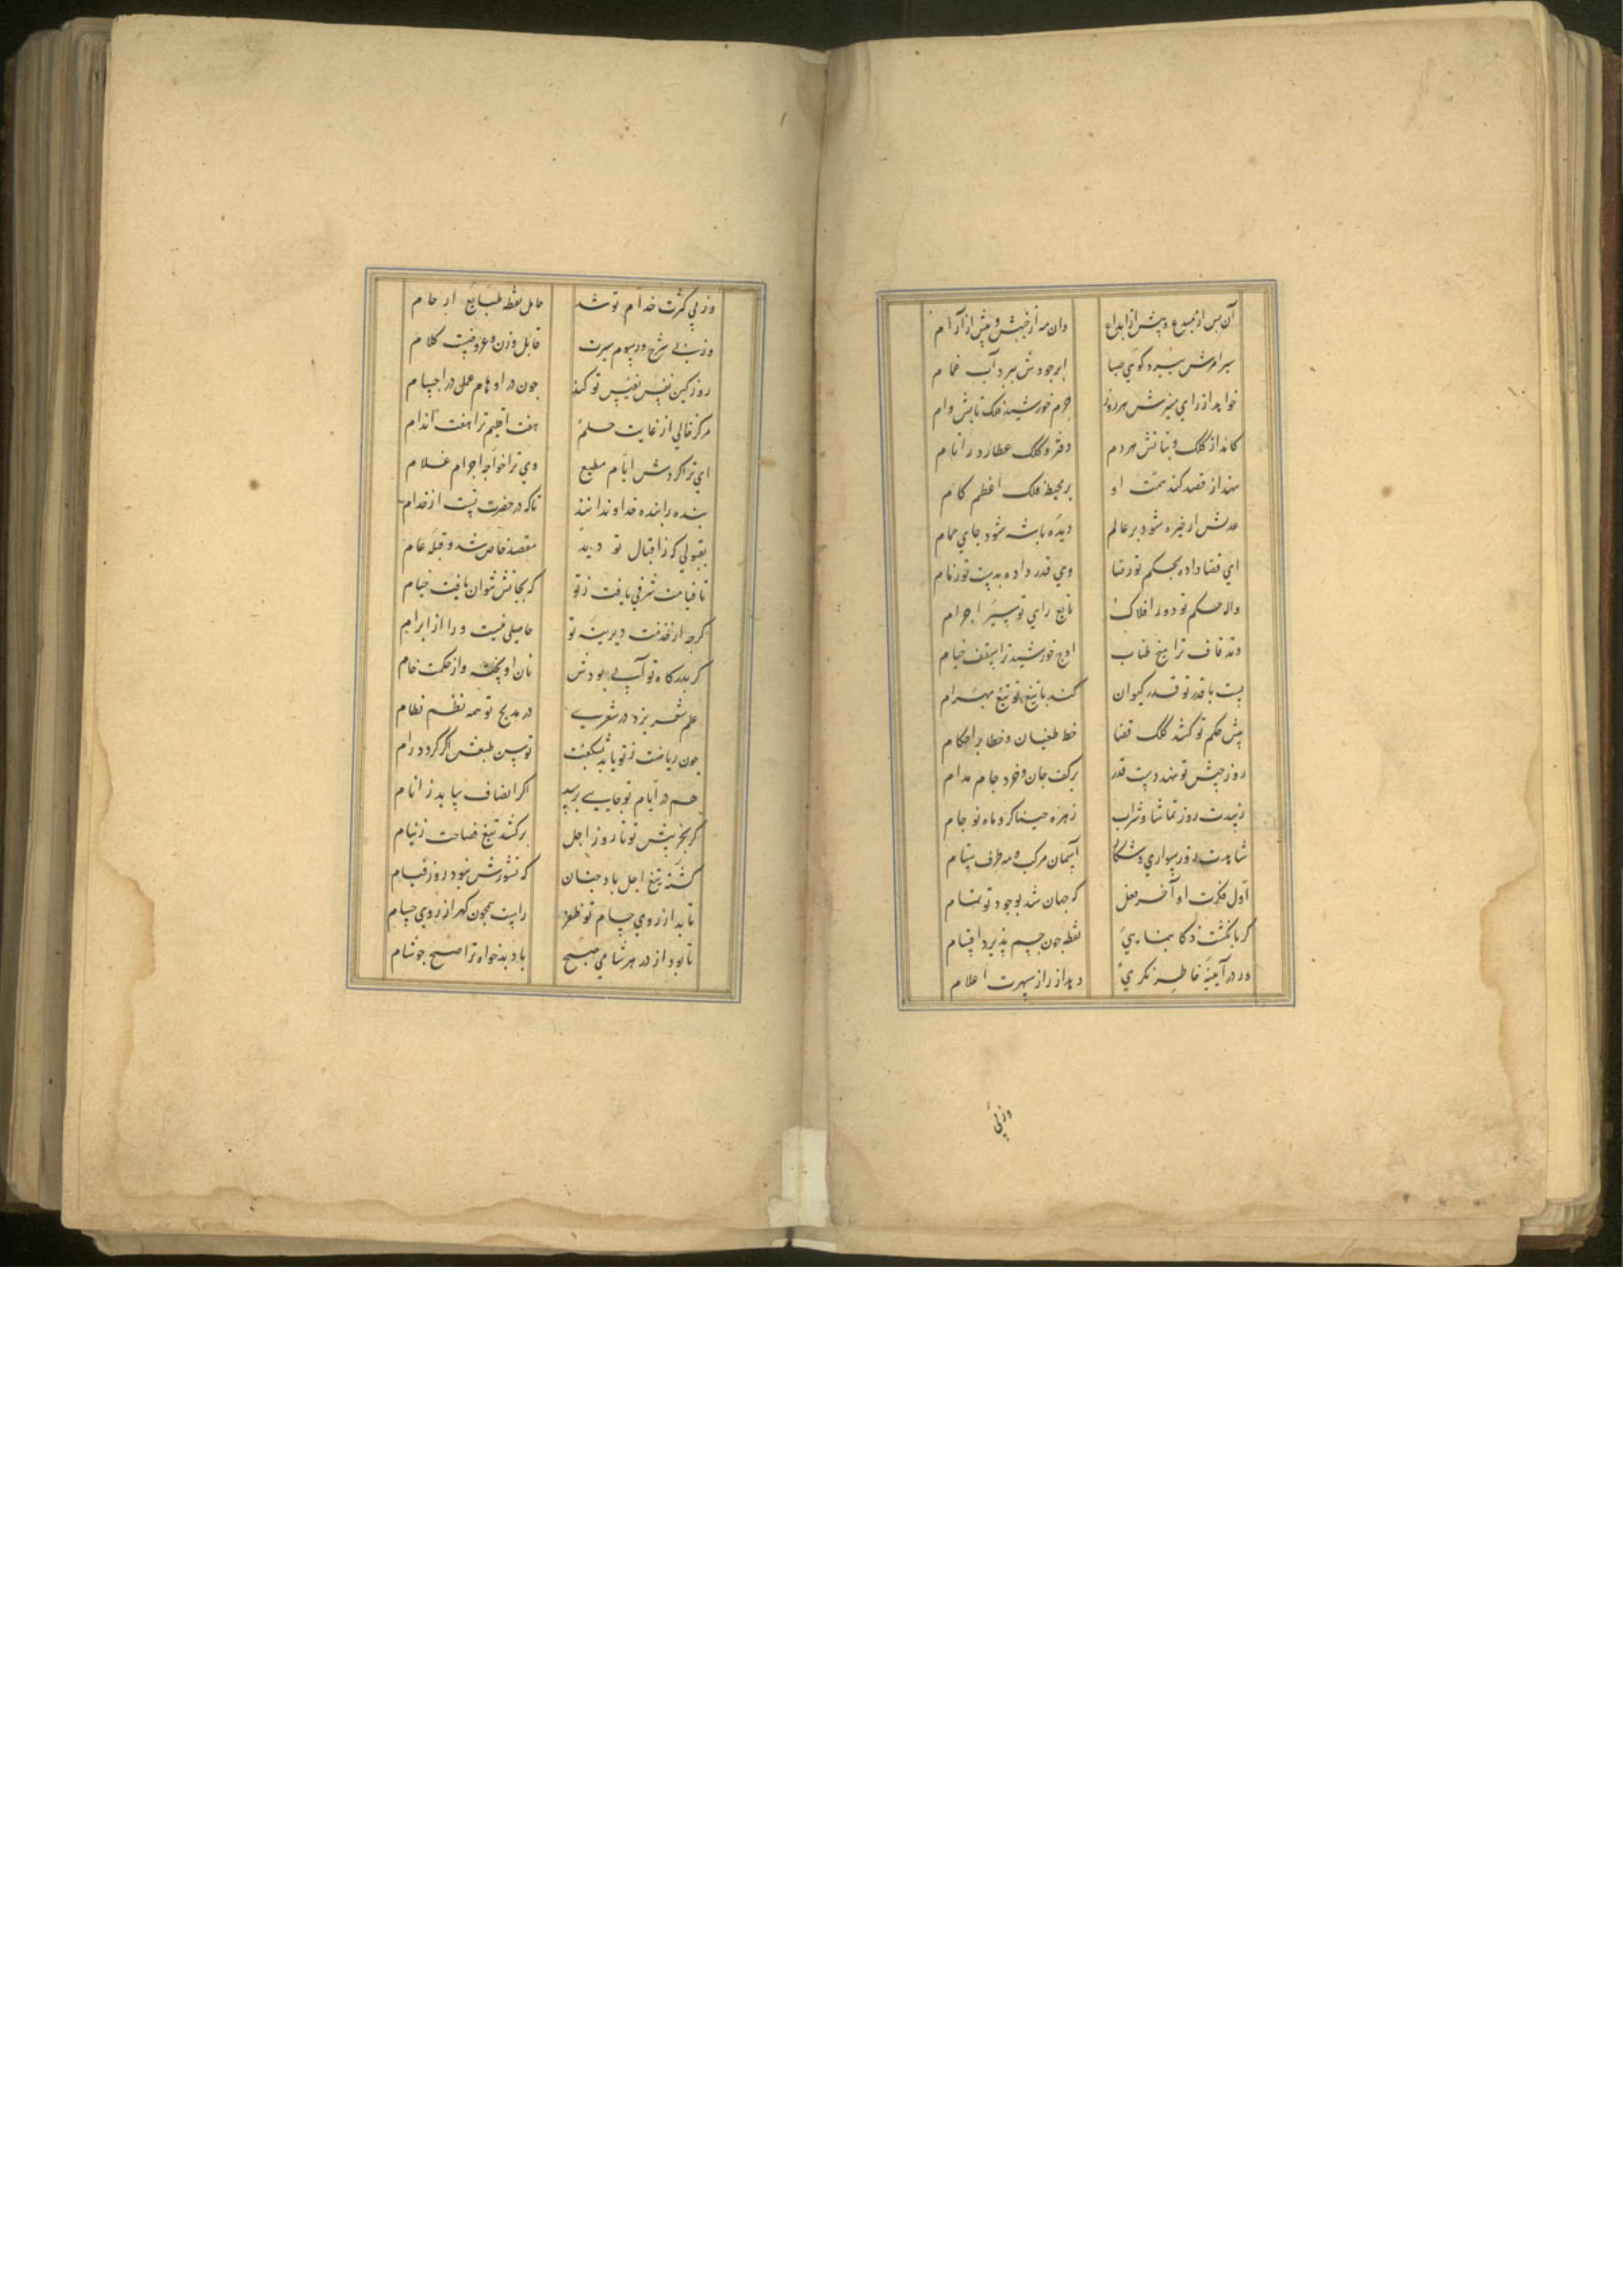 آن پس از مبدع و پیش از ابداع وان مه از جنبش و پیش از آرام
سیر امرش ببرد گوی صبا ابر جودش ببرد آب غمام
خواهد از رای منیرش هر روز جرم خورشید فلک تابش وام
کاند از کلک و بنانش هر دم دفتر و کلک عطارد را نام
نهد از قصد کند همت او بر محیط فلک اعظم کام
عدلش ار خیره شود بر عالم دیده باشه شود جای حمام
ای قضا داده بحکم تو رضا وی قدر داده بدست تو زمام
واله حکم تو دور افلاک تابع رای تو سیر اجرام
وتد قاف ترا میخ طناب اوج خورشید ترا سقف خیام
پست با قدر تو قدر کیوان کند با تیغ تو تیغ بهرام
پیش حکم تو کشد کلک قضا خط طغیان و خطا بر احکام
روز جیش تو نهد دست قدر بر کف جان و خرد جام مدام
زیبدت روز تماشا و شراب زهره خنیاگر و ماه نو جام
شایدت روز سواری و شکار آسمان مرکب و مه طرف ستام
اول فکرت او آخر فعل که جهان شد بوجود تو تمام
گر بانگشت ذکا بنمایی نقطه چون جسم پذیرد اقسام
ور در آیینه خاطر نگری دهد از راز سپهرت اعلام
وز پی
وز پی کثرت خدام تو شد حامل نطفه طبایع ارحام
وز پی شرح رسوم سیرت قابل وزن و عروضست کلام
روز کین نفس نفیس تو کند چون در اوهام عمل در اجسام
مرکز خالی از غایت حلم هفت اقلیم ترا هفت اندام
ای ترا گردش ایام مطیع وی ترا خواجه اجرام غلام
بنده را بنده خداوندانند تا که در حضرت تست از خدام
بقبولی که ز اقبال تو دید مقصد خاص شد و قبله عام
تا قیامت شرفی یافت ز تو که بجانش نتوان یافت خیام
گرچه از خدمت دیرینه تو حاصلی نیست ورا از ابرام
گر بدرگاه تو آبی بودش نان او پخته و از حکمت خام
علم شعر بزد در شعری در مدیح تو همه نظم نظام
چون ریاضت ز تو یابد نشگفت توسن طبعش اگر گردد رام
هم در ایام تو جایی برسد اگر انصاف بیابد ز انام
گر بخریش تو تا روز اجل برکشد تیغ فصاحت ز نیام
کشته تیغ اجل باد چنان که نشورش نبود روز قیام
تابد از روی حسام تو ظفر راست همچون گهر از روی حسام
تا بود از در هر شامی صبح باد بدخواه ترا صبح چو شام